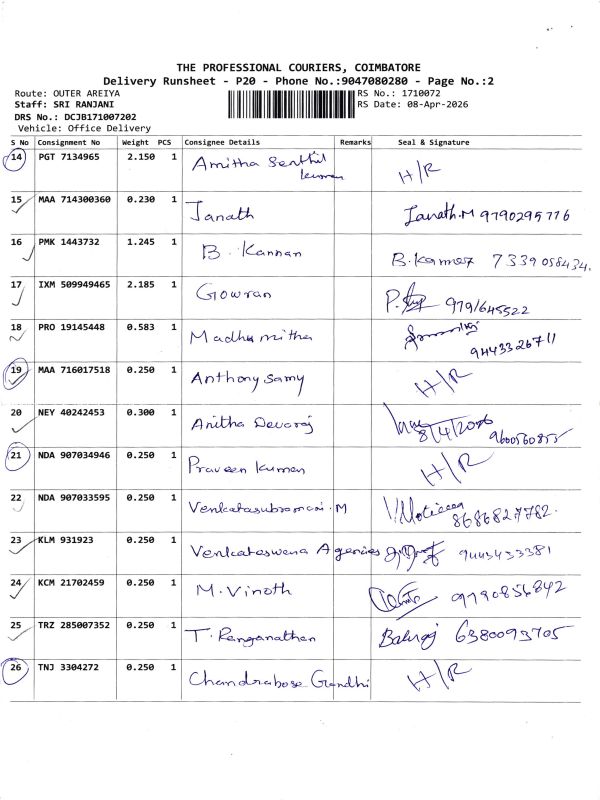 THE PROFESSIONAL COURIERS, COIMBATORE
Delivery Runsheet - P20 - Phone No.:9047080280 - Page No.:2
Route: OUTER AREIYA
Staff: SRI RANJANI
DRS No.: DCJB171007202
Vehicle: Office Delivery
RS No.: 1710072
RS Date: 08-Apr-2026
S No Consignment No Weight PCS Consignee Details Remarks Seal & Signature
14 PGT 7134965 2.150 1 Amitha Senthil kumar H/R
15 MAA 714300360 0.230 1 Janath Janath.M 9790295776
16 PMK 1443732 1.245 1 B. Kannan B. 7339058434.
17 IXM 509949465 2.185 1 Gowran P. 9791645522
18 PRO 19145448 0.583 1 Madhumitha 9443326711
19 MAA 716017518 0.250 1 Anthony Samy H/R
20 NEY 40242453 0.300 1 Anitha Devaraj 8/4/2026 9600560855
21 NDA 907034946 0.250 1 Praveen kumar H/R
22 NDA 907033595 0.250 1 Venkatasubramani.M 8686827782.
23 KLM 931923 0.250 1 Venkateswara Agencies 9443433381
24 KCM 21702459 0.250 1 M.Vinoth 9790856842
25 TRZ 285007352 0.250 1 T. Ranganathan Balraj 6380093705
26 TNJ 3304272 0.250 1 Chandrabose Gandhi H/R